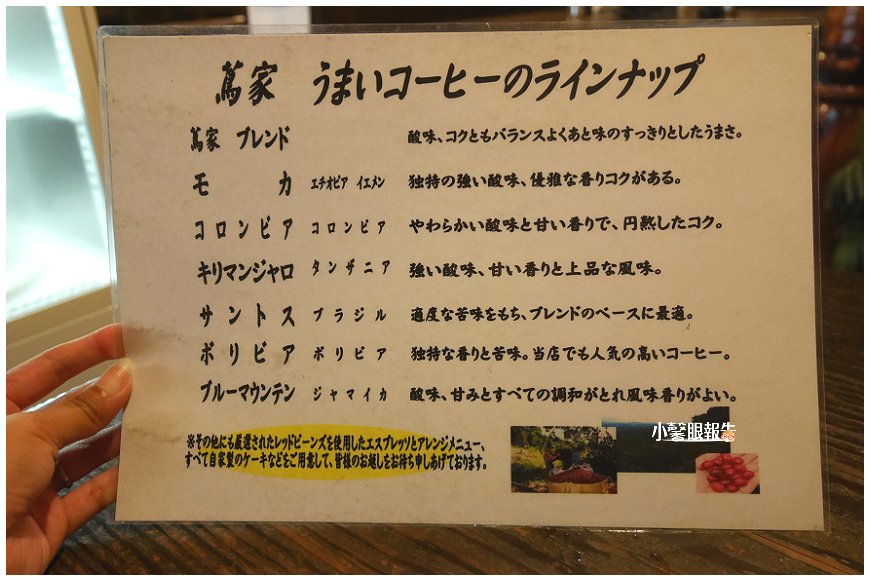 蔦家 うまいコーヒーのラインナップ
蔦家 ブレンド 酸味、コクともバランスよくあと味のすっきりとしたうまさ。
モカ エチオピア イエメン 独特の強い酸味、優雅な香りコクがある。
コロンビア コロンビア やわらかい酸味と甘い香りで、円熟したコク。
キリマンジャロ タンザニア 強い酸味、甘い香りと上品な風味。
サントス ブラジル 適度な苦味をもち、ブレンドのベースに最適。
ボリビア ボリビア 独特な香りと苦味。当店でも人気の高いコーヒー。
ブルーマウンテン ジャマイカ 酸味、甘みとすべての調和がとれ風味香りがよい。
※その他にも厳選されたレッドビーンズを使用したエスプレッソとアレンジメニュー、
すべて自家製のケーキなどをご用意して、皆様のお越しをお待ち申しあげております。
小馨眼報告